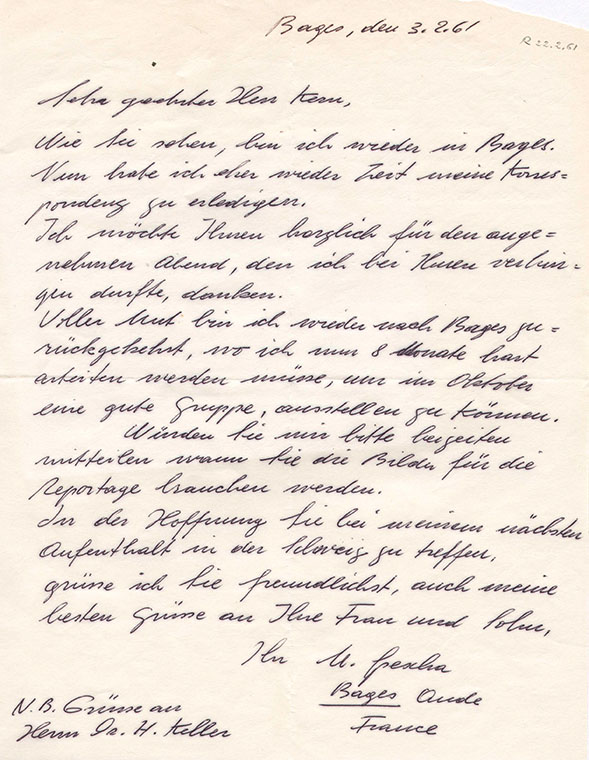 Bages, den 3.2.61
R 22.2.61
Sehr geehrter Herr Kern,
Wie Sie sehen, bin ich wieder in Bages.
Nun habe ich eher wieder Zeit meine Korres=
pondenz zu erledigen.
Ich möchte Ihnen herzlich für den ange=
nehmen Abend, den ich bei Ihnen verbrin=
gen durfte, danken.
Voller Mut bin ich wieder nach Bages zu=
rückgekehrt, wo ich nun 8 Monate hart
arbeiten werden müsse, um im Oktober
eine gute Gruppe, ausstellen zu können.
Würden Sie mir bitte beizeiten
mitteilen wann Sie die Bilder für die
Reportage brauchen werden.
In der Hoffnung Sie bei meinem nächsten
Aufenthalt in der Schweiz zu treffen,
grüsse ich Sie freundlichst, auch meine
besten Grüsse an Ihre Frau und Sohn,
Ihr M.
Bages Aude
France
N.B. Grüsse an
Herrn Dr. H. Keller